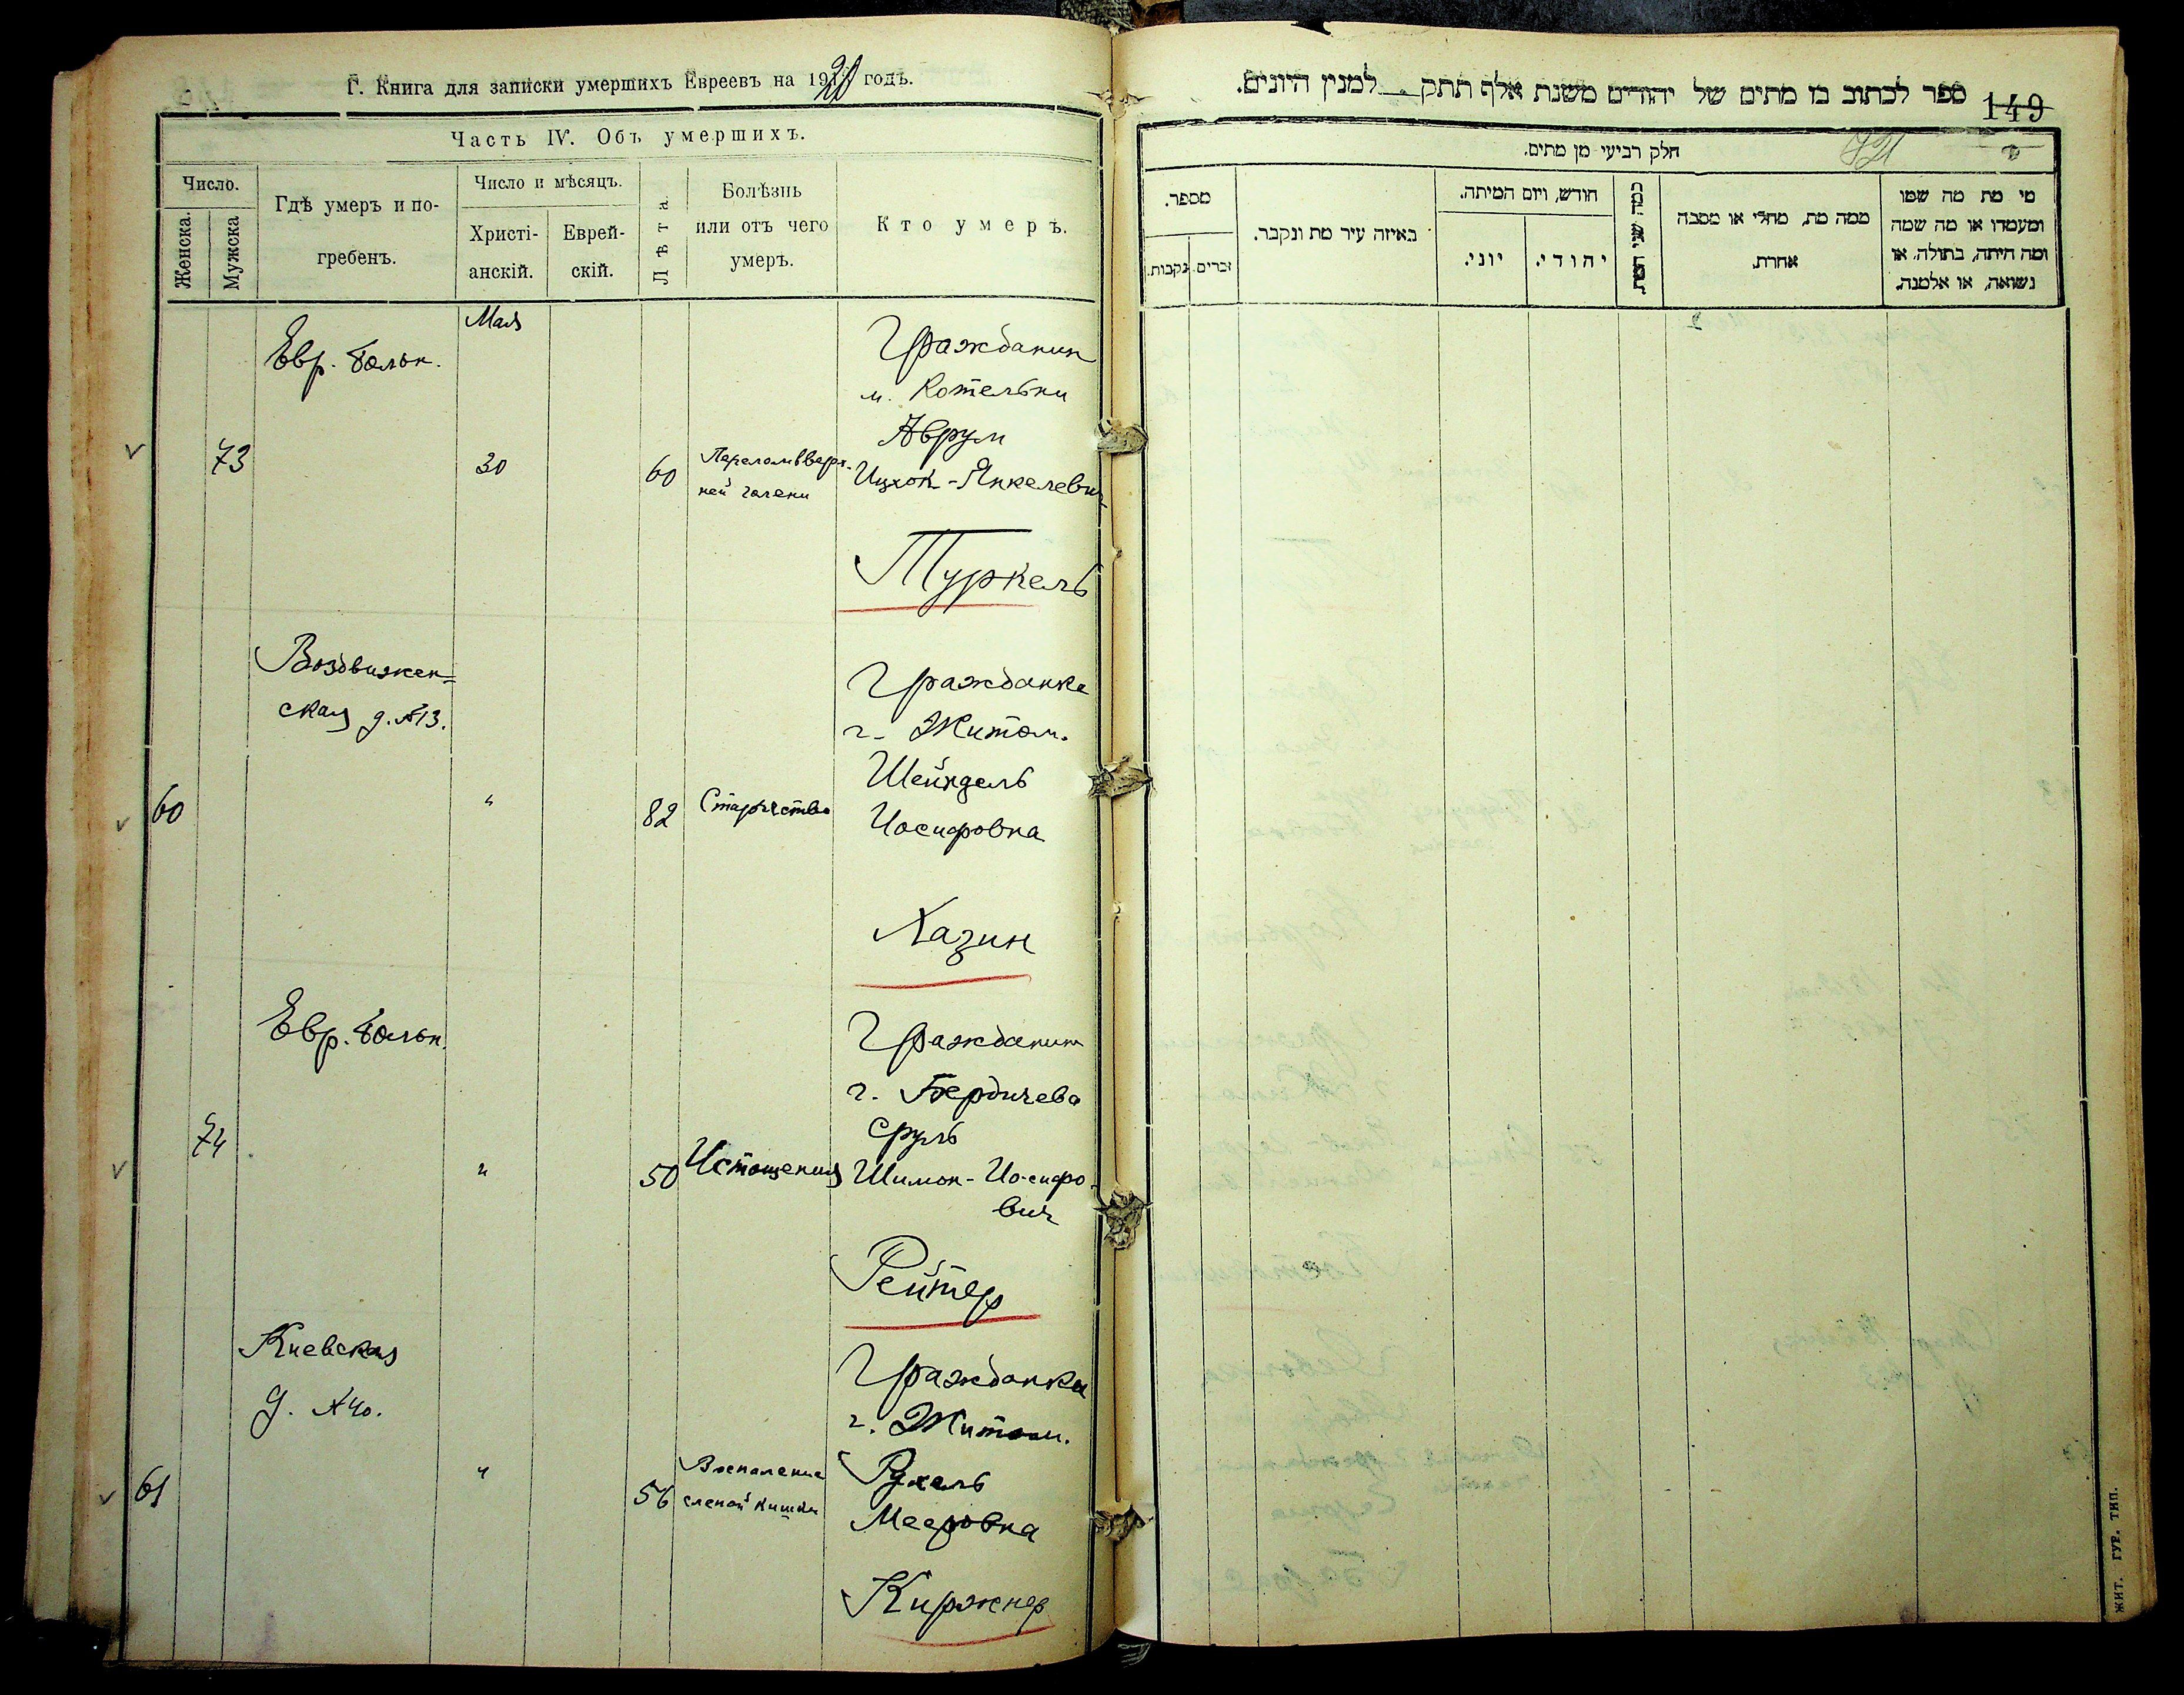 Г. Книга для записки умершихъ Евреевъ на 1920 годъ.
Часть IV. Объ умершихъ.
Число.
Женска.
Мужска
Гдѣ умеръ и по-
гребенъ.
Число и мѣсяцъ.
Христі-
анскій.
Еврей-
скій.
Лѣта.
Болѣзнь
или отъ чего
умеръ.
Кто умеръ.
Мая
Евр. больн.
Гражданин
м. Котельни
Аврум
73
30
60
Перелом верх-
ней голени
Ицхок-Янкелевич
Туркель
Воздвижен=
ская д. №13.
Гражданка
г. Житом.
Шейндель
60
"
82
Старчество
Иосифовна
Хазин
Евр. больн.
Гражданин
г. Бердичева
Сруль
74
"
50
Истощения
Шимон-Иосифо-
вич
Рейтер
Киевская
д. №40.
Гражданка
г. Житом.
61
"
56
Воспаление
слепой кишки
Рухель
Мееровна
Киржнер
ספר לכתוב בו מתים של יהודים משנת אלף תתק למנין היונים.
149
חלק רביעי מן מתים.
מספר.
נקבות.
זכרים.
באיזה עיר מת ונקבר.
חודש, ויום המיתה.
יוני.
יהודי.
כמה שני המת
ממה מת, מחלי או מסבה
אחרת.
מי מת מה שמו
ומעמדו או מה שמה
ומה היתה, בתולה, או
נשואה, או אלמנה.
ЖИТ. ГУБ. ТИП.